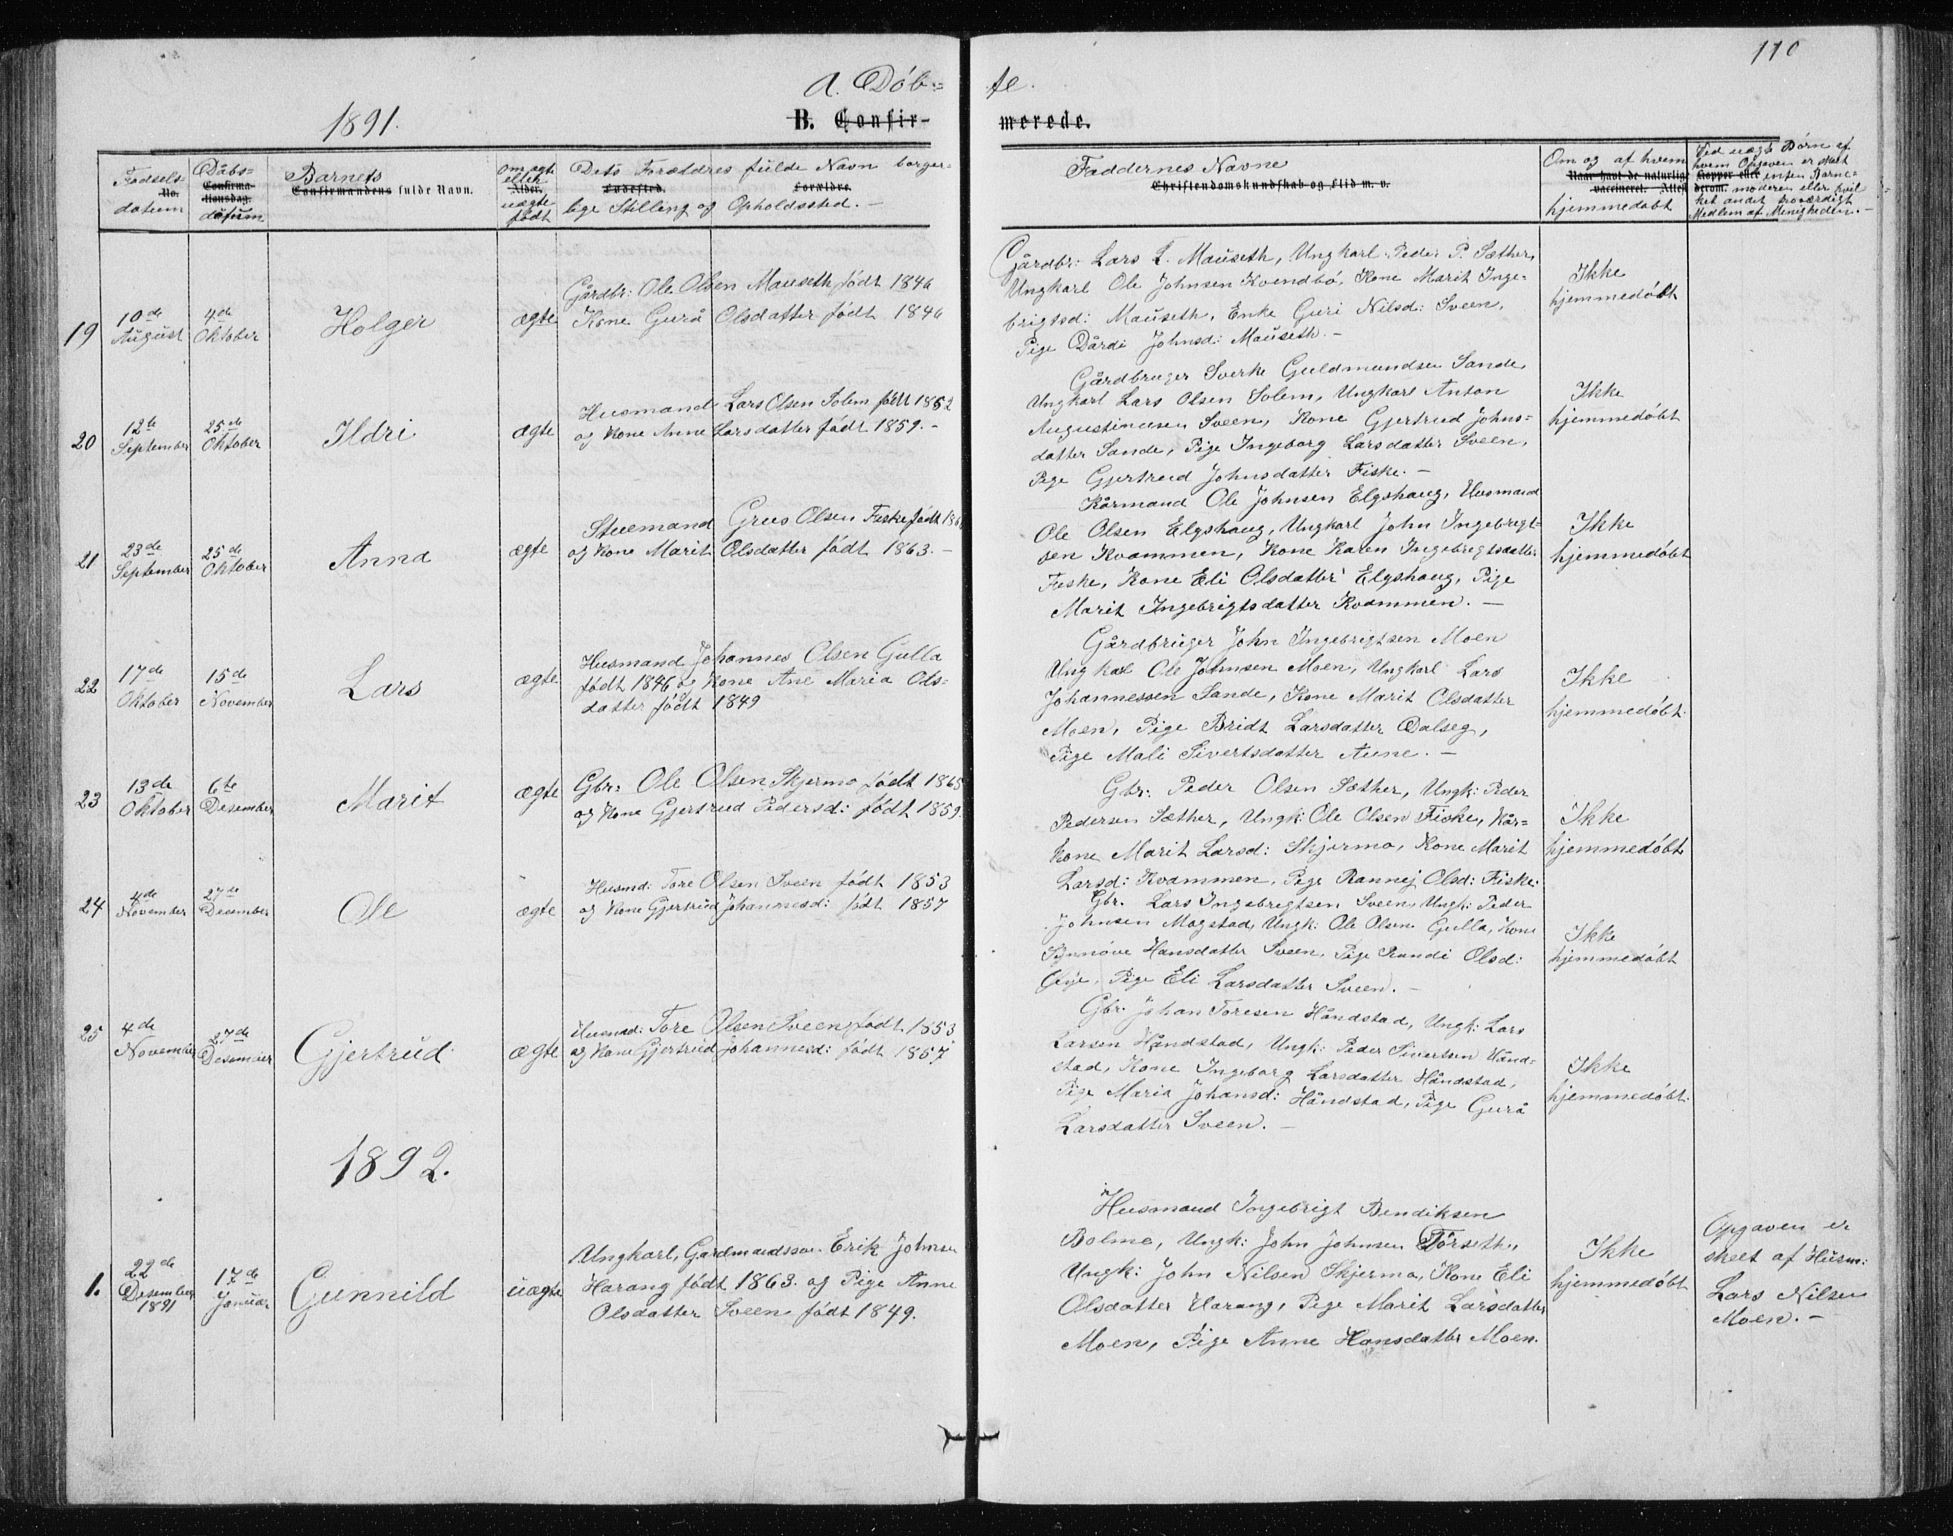 110
A. Döb= te.
1891.
B. Confir- merede.
Fødsels-
No.
datum
Dåbs-
Confirma-
tionsdag.
datum
Barnets
Confirmandens fulde Navn.
Om ægte
eller
Alder.
uægte
født
Dets Forældres fulde Navn borger-
Fødested. Forældre.
lige Stilling og Opholdssted. -
Faddernes Navne
Christendomskundskab og Flid m. v.
Om og af hvem
Naar havt de naturlige
vaccineret. Attest
hjemmedøbt
Ved uægte Børn af
hvem Opgaven er skeet
Kopper eller enten Barne-
derom. moderen eller hvil
ket andet troværdigt
Medlem af Menigheden. -
19
10de
August
4de
Oktober
Holger
ægte
Gårdbr: Ole Olsen Mauseth født 1846
Kone Gurå Olsdatter født 1846
Gårdbr: Lars L. Mauseth, Ungkarl Peder P. Sæther,
Ungkarl Ole Johnsen Kvendbø, Kone Marit Inge-
brigtsd: Mauseth, Enke Guri Nilsd: Sveen,
Pige Dårdi Johnsd: Mauseth. -
Ikke
hjemmedøbt
20
12te
September
25de
Oktober
Ildri
ægte
Husmand Lars Olsen Solem født 1852
og Kone Anne Larsdatter født 1859. -
Gårdbruger Sverke Guldmundsen Sande,
Ungkarl Lars Olsen Solem, Ungkarl Anton
Augustinusen Sveen, Kone Gjertrud Johns-
datter Sande, Pige Ingeborg Larsdatter Sveen,
Pige Gjertrud Johnsdatter Fiske. -
Ikke
hjemmedøbt
21
23de
September
25de
Oktober
Anna
ægte
Stuemand Greus Olsen Fiske født 186
og Kone Marit Olsdatter født 1863. -
Kårmand Ole Johnsen Elgshaug, Husmand
Ole Olsen Elgshaug, Ungkarl John Ingebrigt-
sen Kvammen, Kone Karen Ingebrigtsdatter
Fiske, Kone Eli Olsdatter Elgshaug, Pige
Marit Ingebrigtsdatter Kvammen. -
Ikke
hjemmedøbt
22
17de
Oktober
15de
November
Lars
ægte
Husmand Johannes Olsen Gulla
født 1846 og Kone Ane Maria Ols-
datter født 1849
Gårdbruger John Ingebrigtsen Moen
Ungkal Ole Johnsen Moen, Ungkarl Lars
Johannessen Sande, Kone Marit Olsdatter
Moen, Pige Bridt Larsdatter Dalseg,
Pige Mali Sivertsdatter Aune. -
Ikke
hjemmedøbt.
23
13de
Oktober
6te
Desember
Marit
ægte
Gbr: Ole Olsen Skjermo født 1865
og Kone Gjertrud Pedersd: født 1859.
Gbr: Peder Olsen Sæther, Ungk: Peder
Pedersen Sæther, Ungk: Ole Olsen Fiske, Kår=
kone Marit Larsd: Skjermo, Kone Marit
Larsd: Kvammen, Pige Rannej Olsd: Fiske.
Ikke
hjemmedøbt
24
4de
November
27de
Desember
Ole
ægte
Husmd: Tore Olsen Sveen født 1853
og Kone Gjertrud Johannesd: født 1857
Gbr. Lars Ingebrigtsen Sveen, Ungk: Peder
Johnsen Magstad, Ungk: Ole Olsen Gulla, Kone
Synnöve Hansdatter Sveen, Pige Randi Olsd:
Øye, Pige Eli Larsdatter Sveen. -
Ikke
hjemmedøbt
25
4de
November
27de
Desember
Gjertrud
ægte
Husmd: Tore Olsen Sveen født 1853
og Kone Gjertrud Johannesd: født 1857
Gbr. Johan Toresen Håndstad, Ungk: Lars
Larsen Håndstad, Ungk: Peder Sivertsen Hånd-
stad, Kone Ingeborg Larsdatter Håndstad,
Pige Maria Johansd: Håndstad, Pige Gurå
Larsdatter Sveen. -
Ikke
hjemmedøbt.
1892.
1.
22de
Desember
1891
17de
Januar
Gunnild
uægte
Ungkarl, Gardmandssøn Erik Johnsen
Harang født 1863. og Pige Anne
Olsdatter Sveen født 1849.
Husmand Ingebrigt Bendiksen
Bolme, Ungk: John Johnsen Törseth,
Ungk: John Nilsen Skjermo, Kone Eli
Olsdatter Harang, Pige Marit Larsdatter
Moen, Pige Anne Hansdatter Moen.
Ikke
hjemmedøbt
Opgaven er
skeet af Husm:
Lars Nilsen
Moen. -